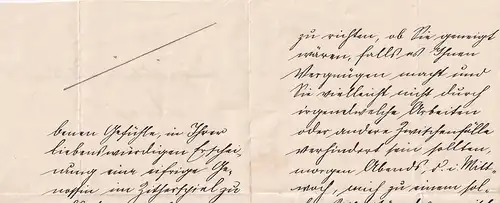 benen Gefühle, in Ihrer
liebenswürdigen Erschei-
nung eine eifrige Ge-
nossin im Zitherspiel zu
zu richten, ob Sie geneigt
wären, falls es Ihnen
Vergnügen macht und
Sie vielleicht nicht durch
irgendwelche Arbeiten
oder andere Zwischenfälle
verhindert sein sollten,
morgen Abends, d. i. Mitt-
woch, mich zu einem sol-